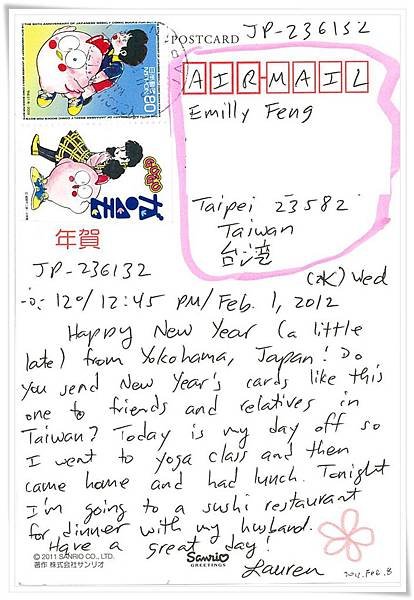 POSTCARD
JP-236132
AIR-MAIL
Emilly Feng
Taipei 23582
Taiwan
台湾
日本郵便
NIPPON
80
年賀
JP-236132
(水) Wed
12°/12:45 PM/Feb. 1, 2012
Happy New Year (a little
late) from Yokohama, Japan! Do
you send New Year's cards like this
one to friends and relatives in
Taiwan? Today is my day off so
I went to yoga class and then
came home and had lunch. Tonight
I'm going to a sushi restaurant
for dinner with my husband.
Have a great day!
Lauren
2012.FEB.8
© 2011 SANRIO CO., LTD.
著作 株式会社サンリオ
Sanrio
GREETINGS